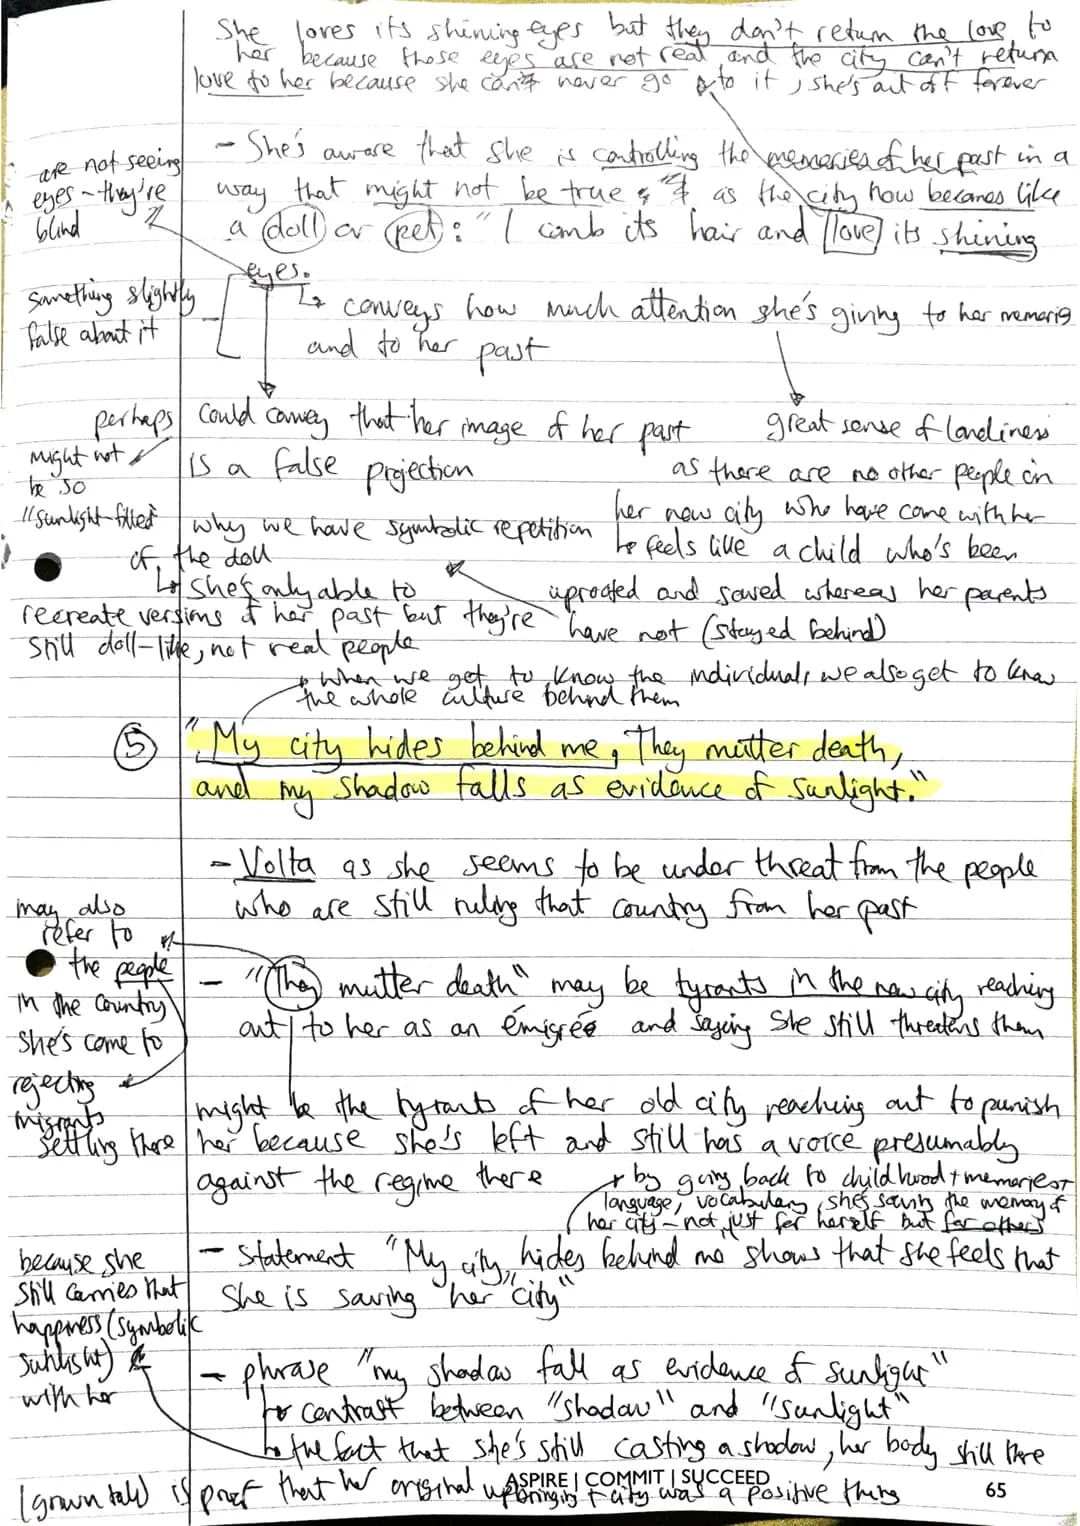 She loves its shining eyes but they don't return the love to
her because those eyes are not real and the city can't return
love to her because she can never go to it, she's cut off forever
are not seeing
eyes - they're
blind
- She's aware that she is controlling the memories of her past in a
way that might not be true & as the city now becomes like
a doll or pet: "I comb its hair and love its shining
eyes.
something slightly
false about it
↳ conveys how much attention she's giving to her memories
and to her past
perhaps
might not
be so
"sunlight-filled"
could convey that her image of her past
is a false projection
why we have symbolic repetition
of the doll
↳ She's only able to
recreate versions of her past but they're
still doll-like, not real people
great sense of loneliness
as there are no other people in
her new city who have come with her
↳ feels like a child who's been
uprooted and saved whereas her parents
have not (stayed behind)
when we get to know the individual, we also get to know
the whole culture behind them
⑤ "My city hides behind me, They mutter death,
and my shadow falls as evidence of sunlight."
- Volta as she seems to be under threat from the people
who are still ruling that country from her past
may also
refer to
the people
in the country
she's come to
rejecting
migrants
settling there
- "They mutter death" may be tyrants in the new city reaching
out to her as an émigreé and saying she still threatens them
might be the tyrants of her old city reaching out to punish
her because she's left and still has a voice presumably
against the regime there
by going back to childhood + memories +
language, vocabulary, she's saving the memory of
her city - not just for herself but for others
- Statement "My city hides behind me" shows that she feels that
she is saving "her city"
because she
still carries that
happiness (symbolic
sunlight)
with her
- phrase "my shadow fall as evidence of sunlight"
↳ contrast between "shadow" and "sunlight"
↳ the fact that she's still casting a shadow, her body still there
(grown tall) is proof that her original upbringing + city was a positive thing
ASPIRE | COMMIT | SUCCEED
65